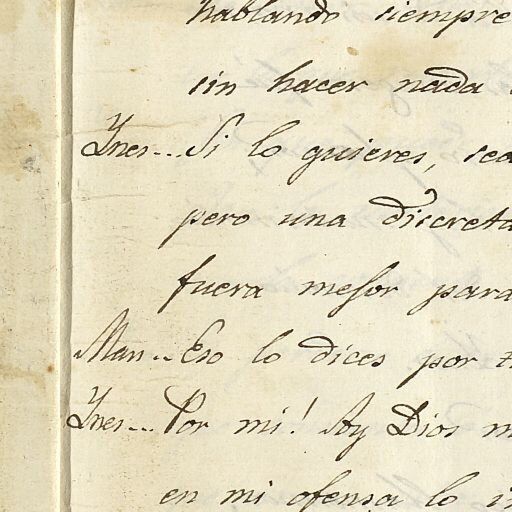 hablando siempre
sin hacer nada
Ynes... Si lo quieres, sea
pero una discreta
fuera mejor para
Man... Eso lo dices por
Ynes... Por mi! Ay Dios
en mi ofensa lo